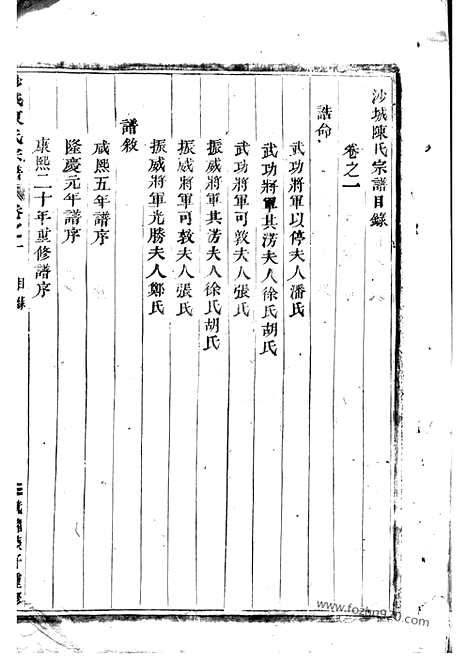 沙城陳氏宗譜目錄
卷之一
誥命
武功將軍以停夫人潘氏
武功將軍其涝夫人徐氏胡氏
武功將軍可敦夫人張氏
振威將軍其涝夫人徐氏胡氏
振威將軍可敦夫人張氏
振威將軍光勝夫人鄭氏
譜敘
咸熙五年譜序
隆慶元年譜序
康熙二十年重修譜序
沙城陳氏宗譜 卷之一 目錄
www.fozhu920.com